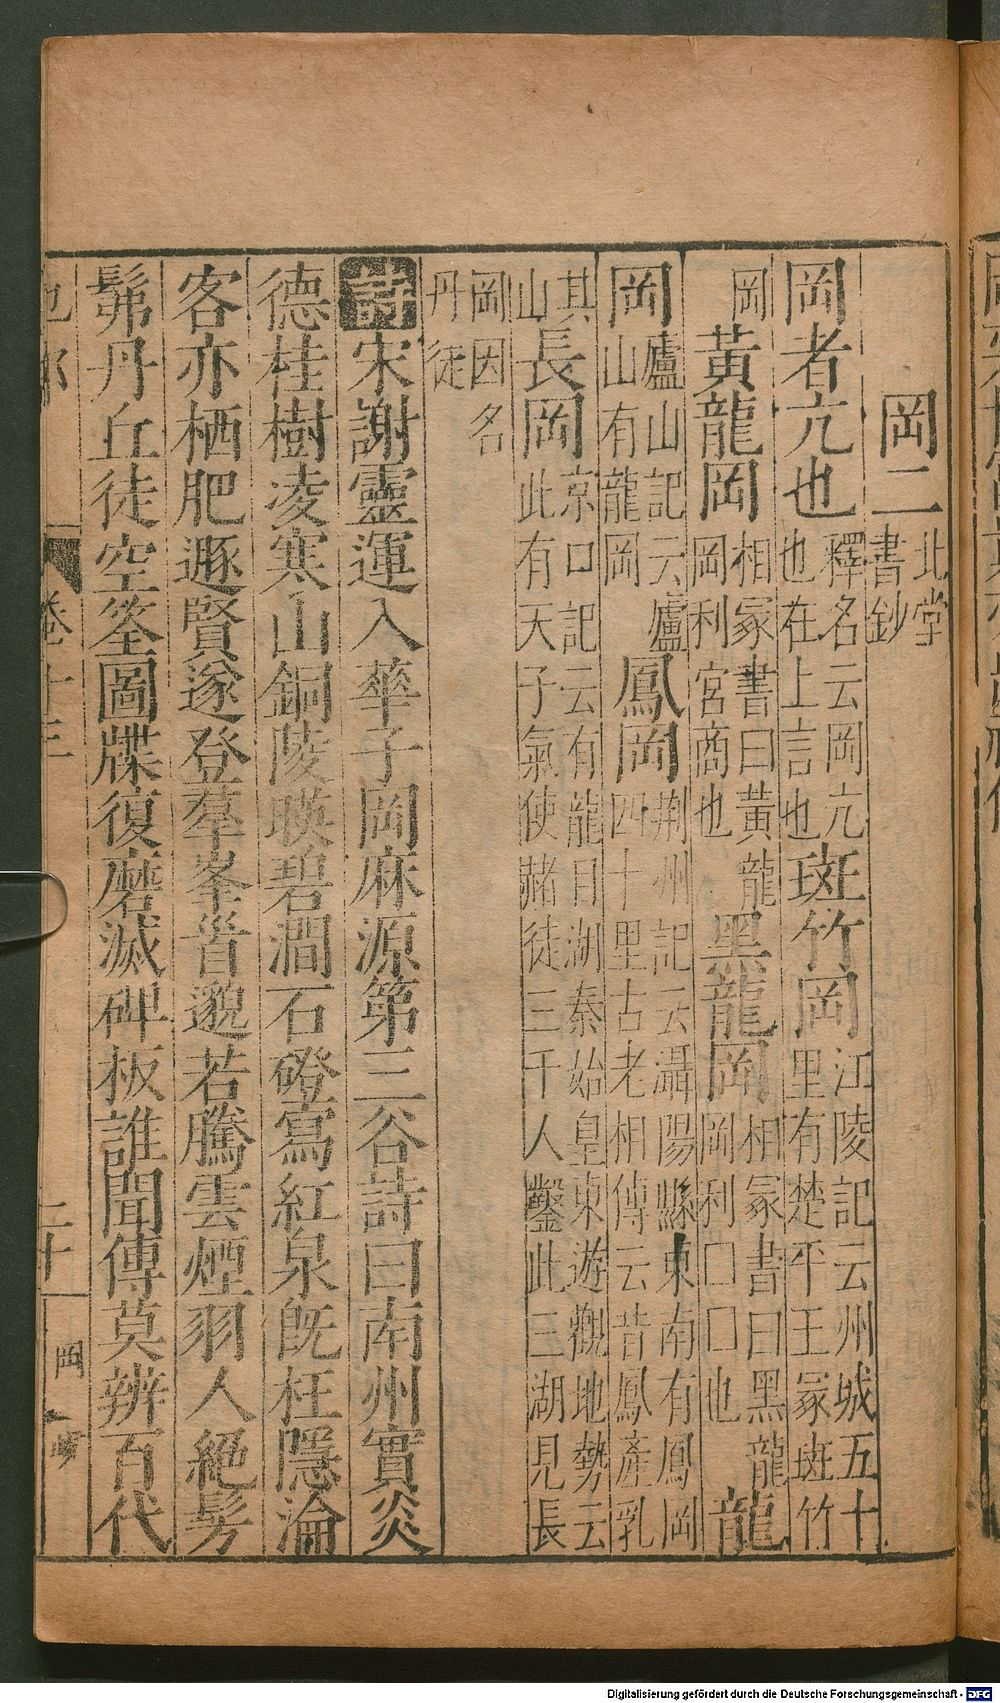 岡二北堂書鈔
岡者亢也釋名云岡亢也在上言也斑竹岡江陵記云州城五十里有楚平王冢斑竹
岡黃龍岡相冢書曰黃龍岡利宮商也黑龍岡相冢書曰黑龍岡利囗囗也龍
岡廬山記云廬山有龍岡鳳岡荊州記云灄陽縣東南有鳳岡四十里古老相傳云昔鳳產乳
其山長岡京口記云有龍目湖秦始皇東遊觀地勢云此有天子氣使赭徒三千人鑿此三湖見長
岡因名丹徒
詩宋謝靈運入華子岡麻源第三谷詩曰南州實炎
德桂樹凌寒山銅陵暎碧澗石磴寫紅泉旣枉隱淪
客亦栖肥遯賢遂登羣峯首邈若騰雲煙羽人絕髣
髴丹丘徒空筌圖牒復磨滅碑板誰聞傳莫辨百代
卷十三 二十 岡
Digitalisierung gefördert durch die Deutsche Forschungsgemeinschaft - DFG